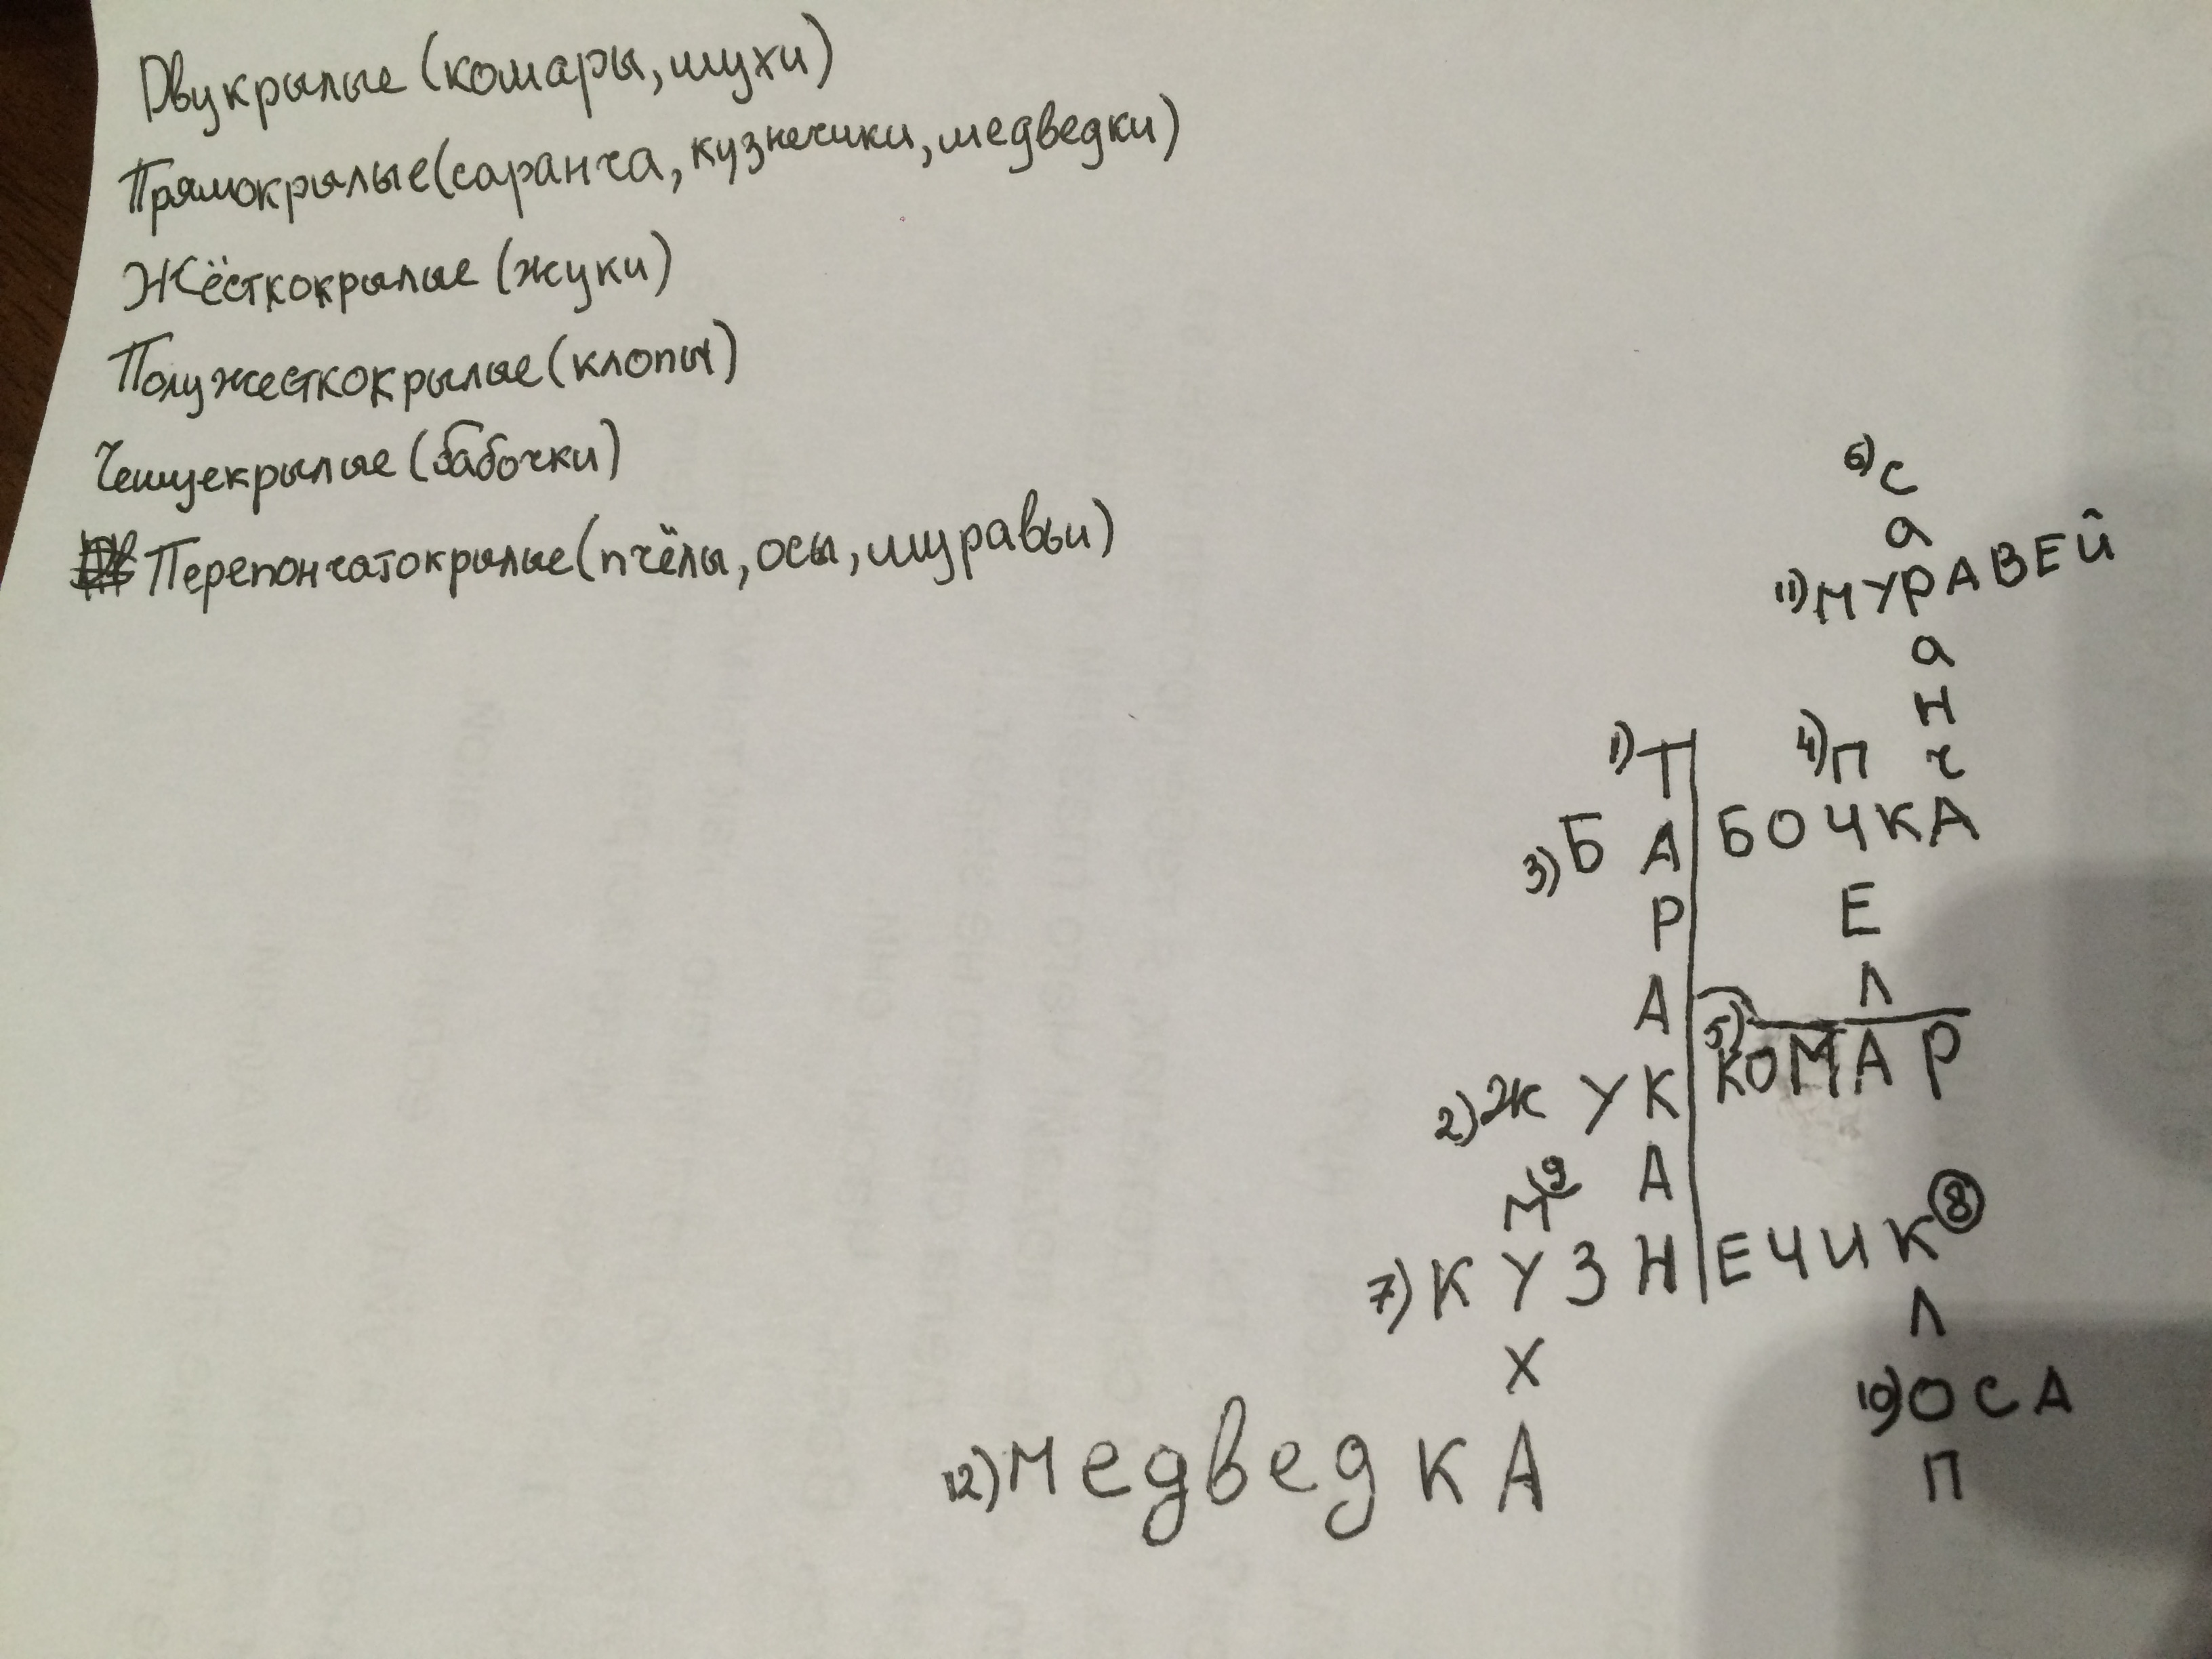 Двукрылые (комары, мухи)
Прямокрылые (саранча, кузнечики, медведки)
Жёсткокрылые (жуки)
Полужесткокрылые (клопы)
Чешуекрылые (бабочки)
Перепончатокрылые (пчёлы, осы, муравьи)
6) С
а
11) МУРАВЕЙ
а
Н
1) Т 4) П ч
3) Б А БОЧКА
Р Е
А Л
2) Ж У К 5) КОМАР
М 9 А
7) К У З Н ЕЧИК 8
Х Л
10) ОСА
12) МедведкА П